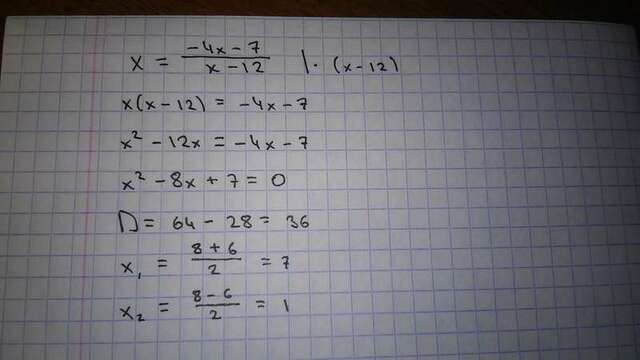 x = (-4x - 7)/(x - 12) |· (x-12)
x(x-12) = -4x-7
x² - 12x = -4x-7
x² - 8x + 7 = 0
D = 64 - 28 = 36
x₁ = (8+6)/2 = 7
x₂ = (8-6)/2 = 1